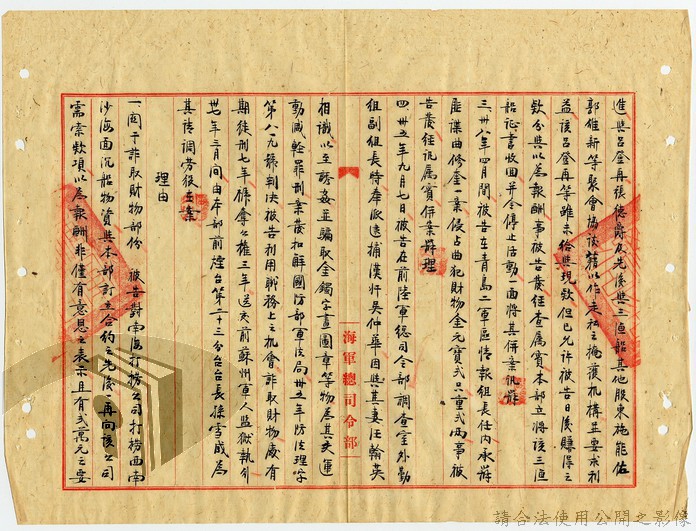 進與呂登再張德霖及先後與三通船其他股東施能佐
郭維新等聚會協議舊以作走私之掩護機構並要求利
益該呂登再等雖未給與現款但已允許被告日後賺得之
款分與以為報酬事被告黃經查屬實本部立將該三通
船証書收回並令停止活動一面將其併案訊辦
三、卅八年四月間被告在青島二軍區情報組長任內承辦
匪諜曲修奎一案侵占曲犯財物金元寶弍只重弍兩事被
告黃經訊屬實併案辦理
四、卅五年九月七日被告在前陸軍總司令部調查室外勤
組副組長時奉派逮捕漢奸吳仲華因與其妻汪翰英
相識以至誘姦並騙取金鐲字畫圖章等物為其夫運
動減輕罪刑案發扣解國防部軍法局卅五年防法理字
第八一九號判決被告利用職務上之機會詐取財物處有
期徒刑七年褫奪公權三年送交前蘇州軍人監獄執行
卅七年三月間由本部前煙台第二十三分台台長孫雪威為
其請調勞役在案
理由
一關于詐取財物部份 被告對南海打撈公司打撈西南
沙海面沉船物資與本部訂立合約之先後再向該公司
需索款項以為報酬非僅有意思之表示且有弍萬元之要
海軍總司令部
請合法使用公開之影像